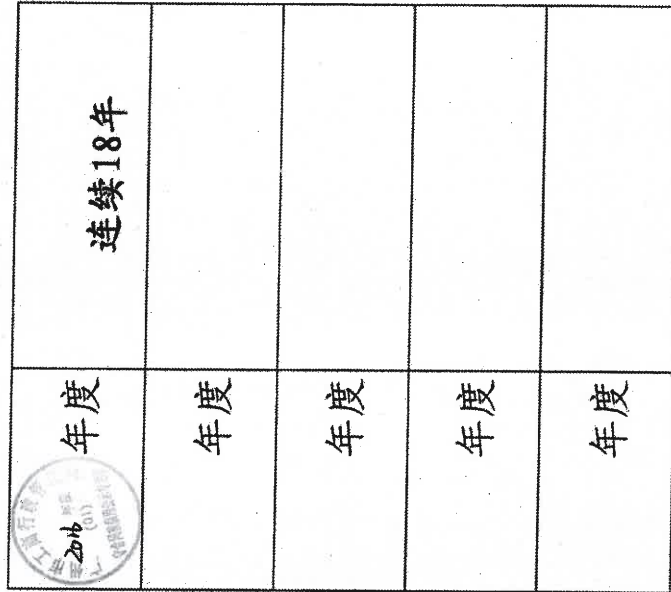 2016
年度
连续18年
年度
年度
年度
年度